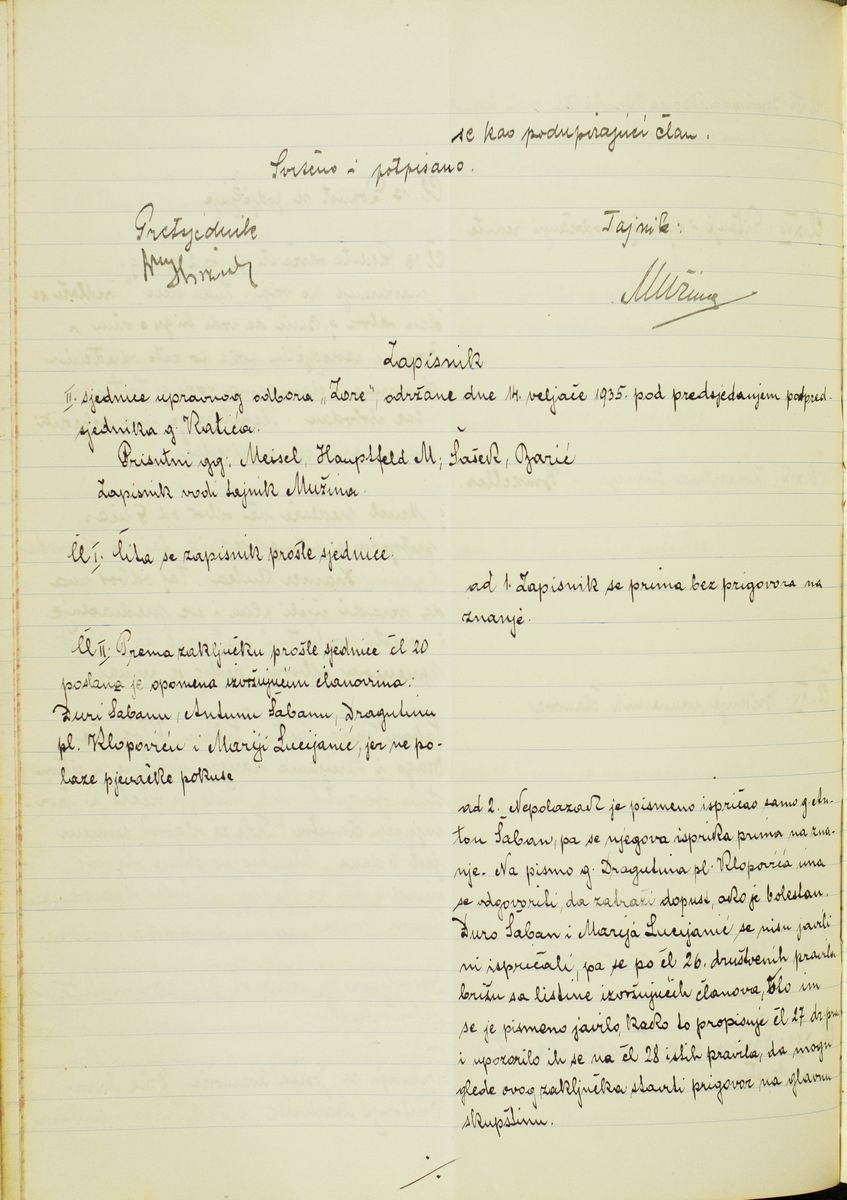 se kao podupirajući član.
Svršeno i potpisano.
Pretsjednik
Tajnik:
Mužina
Zapisnik
II. sjednice upravnog odbora „Zore", održane dne 14. veljače 1935. pod predsjedanjem podpred-
sjednika g. Katića.
Prisutni gg: Meisel, Hauptfeld M; Šašek, Barić
Zapisnik vodi tajnik Mužina.
Čl I. Čita se zapisnik prošle sjednice.
ad 1. Zapisnik se prima bez prigovora na
znanje.
Čl II. Prema zaključku prošle sjednice čl 20
poslana je opomena izvršujućim članovima:
Đuri Šabanu, Antunu Šabanu, Dragutinu
pl. Klopoviću i Mariji Lucijanić, jer ne po-
laze pjevačke pokuse
ad 2. Nepolazak je pismeno ispričao samo g. An-
tun Šaban, pa se njegova isprika prima na zna-
nje. Na pismo g. Dragutina pl. Klopovića ima
se odgovoriti, da zatraži dopust, ako je bolestan.
Đuro Šaban i Marija Lucijanić se nisu javili
ni ispričali, pa se po čl 26. društvenih pravila
brišu sa listine izvršujućih članova, što im
se je pismeno javilo, kako to propisuje čl 27 dr. pra
i upozorilo ih se na čl 28 istih pravila, da mogu
glede ovog zaključka staviti prigovor na glavnu
skupštinu.
./.